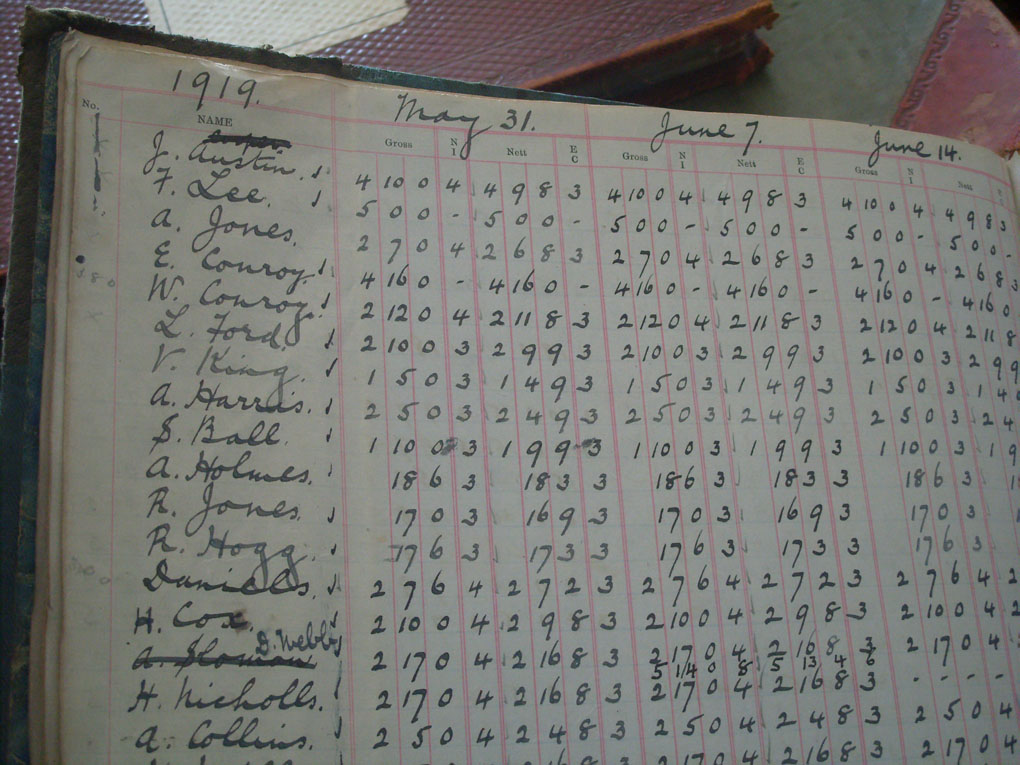 1919. May 31. June 7. June 14.
No. NAME Gross NI Nett EC Gross NI Nett EC Gross NI Nett
J. Austin. 4 10 0 4 4 9 8 3 4 10 0 4 4 9 8 3 4 10 0 4 4 9 8 3
F. Lee. 5 0 0 - 5 0 0 - 5 0 0 - 5 0 0 - 5 0 0 - 5 0 0 -
A. Jones. 2 7 0 4 2 6 8 3 2 7 0 4 2 6 8 3 2 7 0 4 2 6 8 3
E. Conroy. 4 16 0 - 4 16 0 - 4 16 0 - 4 16 0 - 4 16 0 - 4 16 0
W. Conroy 2 12 0 4 2 11 8 3 2 12 0 4 2 11 8 3 2 12 0 4 2 11 8
L. Ford. 2 10 0 3 2 9 9 3 2 10 0 3 2 9 9 3 2 10 0 3 2 9 9
V. King. 1 5 0 3 1 4 9 3 1 5 0 3 1 4 9 3 1 5 0 3 1 4
A. Harris. 2 5 0 3 2 4 9 3 2 5 0 3 2 4 9 3 2 5 0 3 2 4
S. Ball. 1 10 0 3 1 9 9 3 1 10 0 3 1 9 9 3 1 10 0 3 1 9
A. Holmes. 18 6 3 18 3 3 18 6 3 18 3 3 18 6 3
R. Jones. 17 0 3 16 9 3 17 0 3 16 9 3 17 0 3
R. Hogg. 17 6 3 17 3 3 17 6 3 17 3 3 17 6 3
Daniells. 2 7 6 4 2 7 2 3 2 7 6 4 2 7 2 3 2 7 6 4 2
H. Cox. 2 10 0 4 2 9 8 3 2 10 0 4 2 9 8 3 2 10 0 4 2
D. Webb
A. Sloman 2 17 0 4 2 16 8 3 2 17 0 4 2 16 8 3 2 17 0 4 2
5 14 0 8 5 13 4 6
H. Nicholls. 2 17 0 4 2 16 8 3 2 17 0 4 2 16 8 3 - - - -
A. Collins. 2 5 0 4 2 4 8 3 2 5 0 4 2 4 8 3 2 5 0 4
2 16 8 3 2 17 0 4